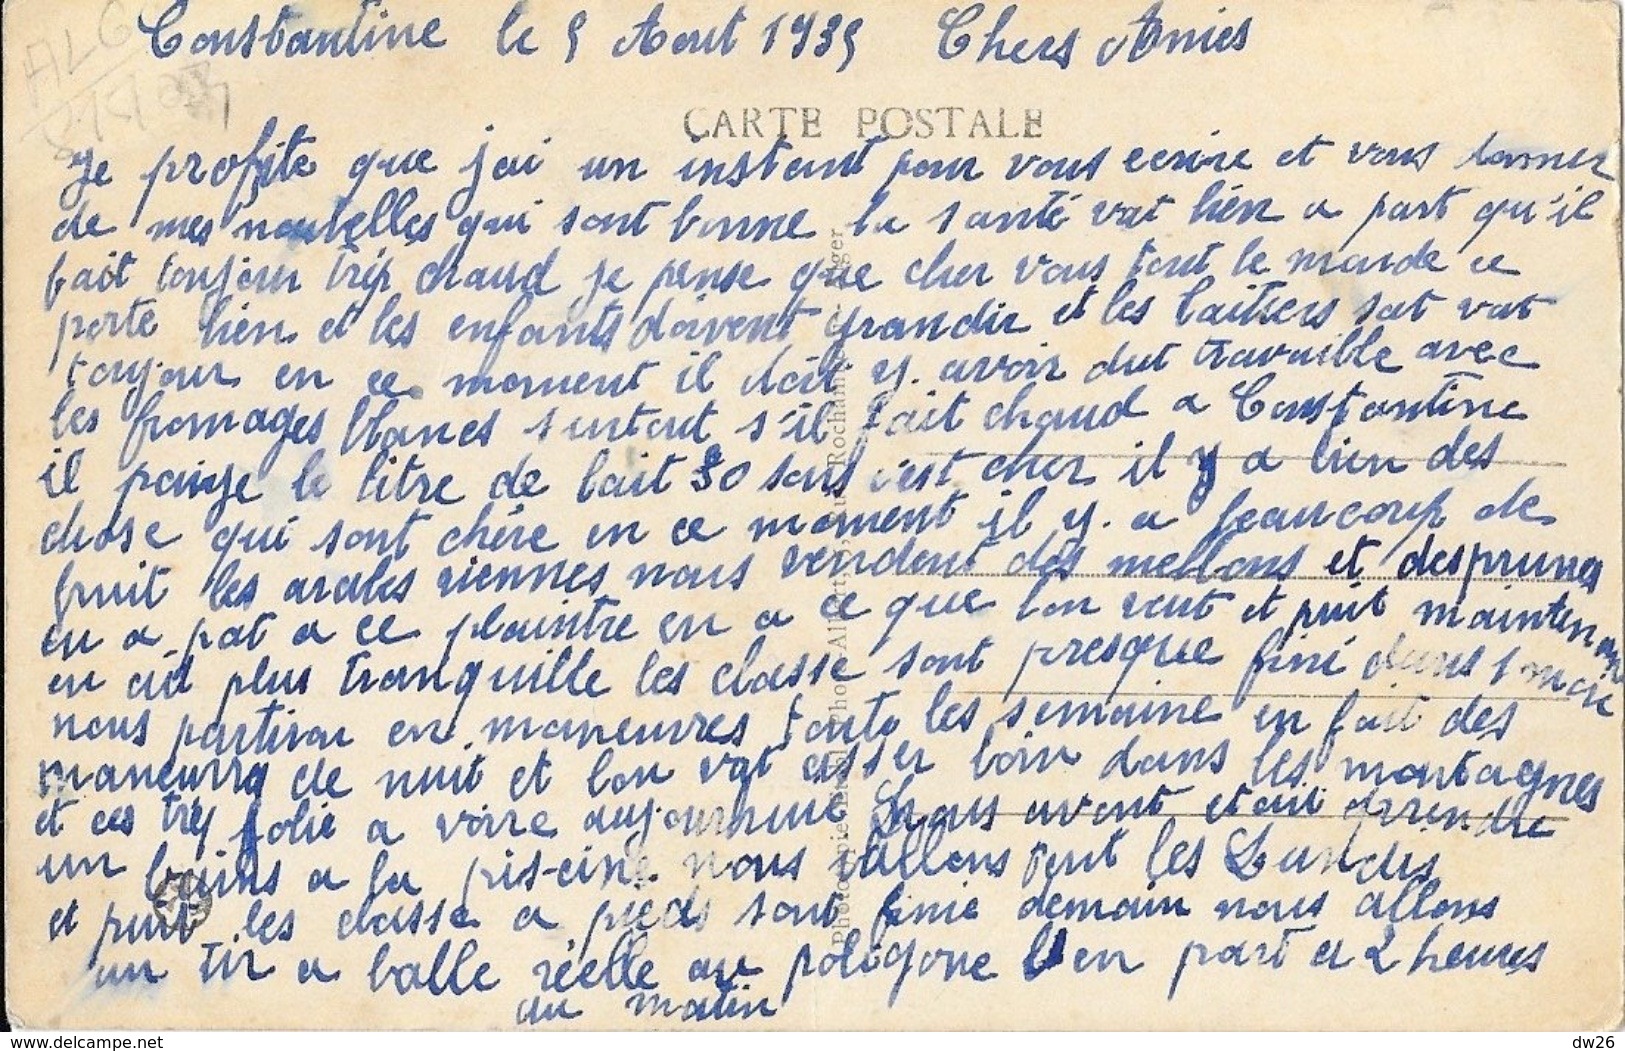 Constantine le 5 Aout 1935 Chers Amies
CARTE POSTALE
Je profite que jai un instant pour vous ecrire et vous donner
de mes nouvelles qui sont bonne la santé vat bien a part qu'il
fait toujour trip chaud je pense que cher vous tout le monde ce
porte bien et les enfants doivent grandir et les laitiers sat vat
toujour en ce moment il doit y. avoir dut travaille avec
les fromages blancs surtout s'il fait chaud a Constantine
il paiye le litre de lait 30 sous c'est cher il y a bien des
chose qui sont chère en ce moment il y. a beaucoup de
fruit les arabes viennes nous vendent des mellons et des prunes
on a pat a ce plaintre on a ce que lon veut et puit maintenant
on aid plus tranquille les classe sont presque fini dans 1 moi
nous partiron en maneuvres toute les semaine on fait des
maneuvres de nuit et lon vat asser loin dans les montagnes
et ces trey jolie a voire aujourhuie nous avont etait prendre
un bains a la piscine nous allons tout les Lundis
et puit les classe a pieds sont finie demain nous allons
un tir a balle réelle au poligone l'on part a 2 heures
du matin
ALG
Alger
dw26
www.delcampe.net